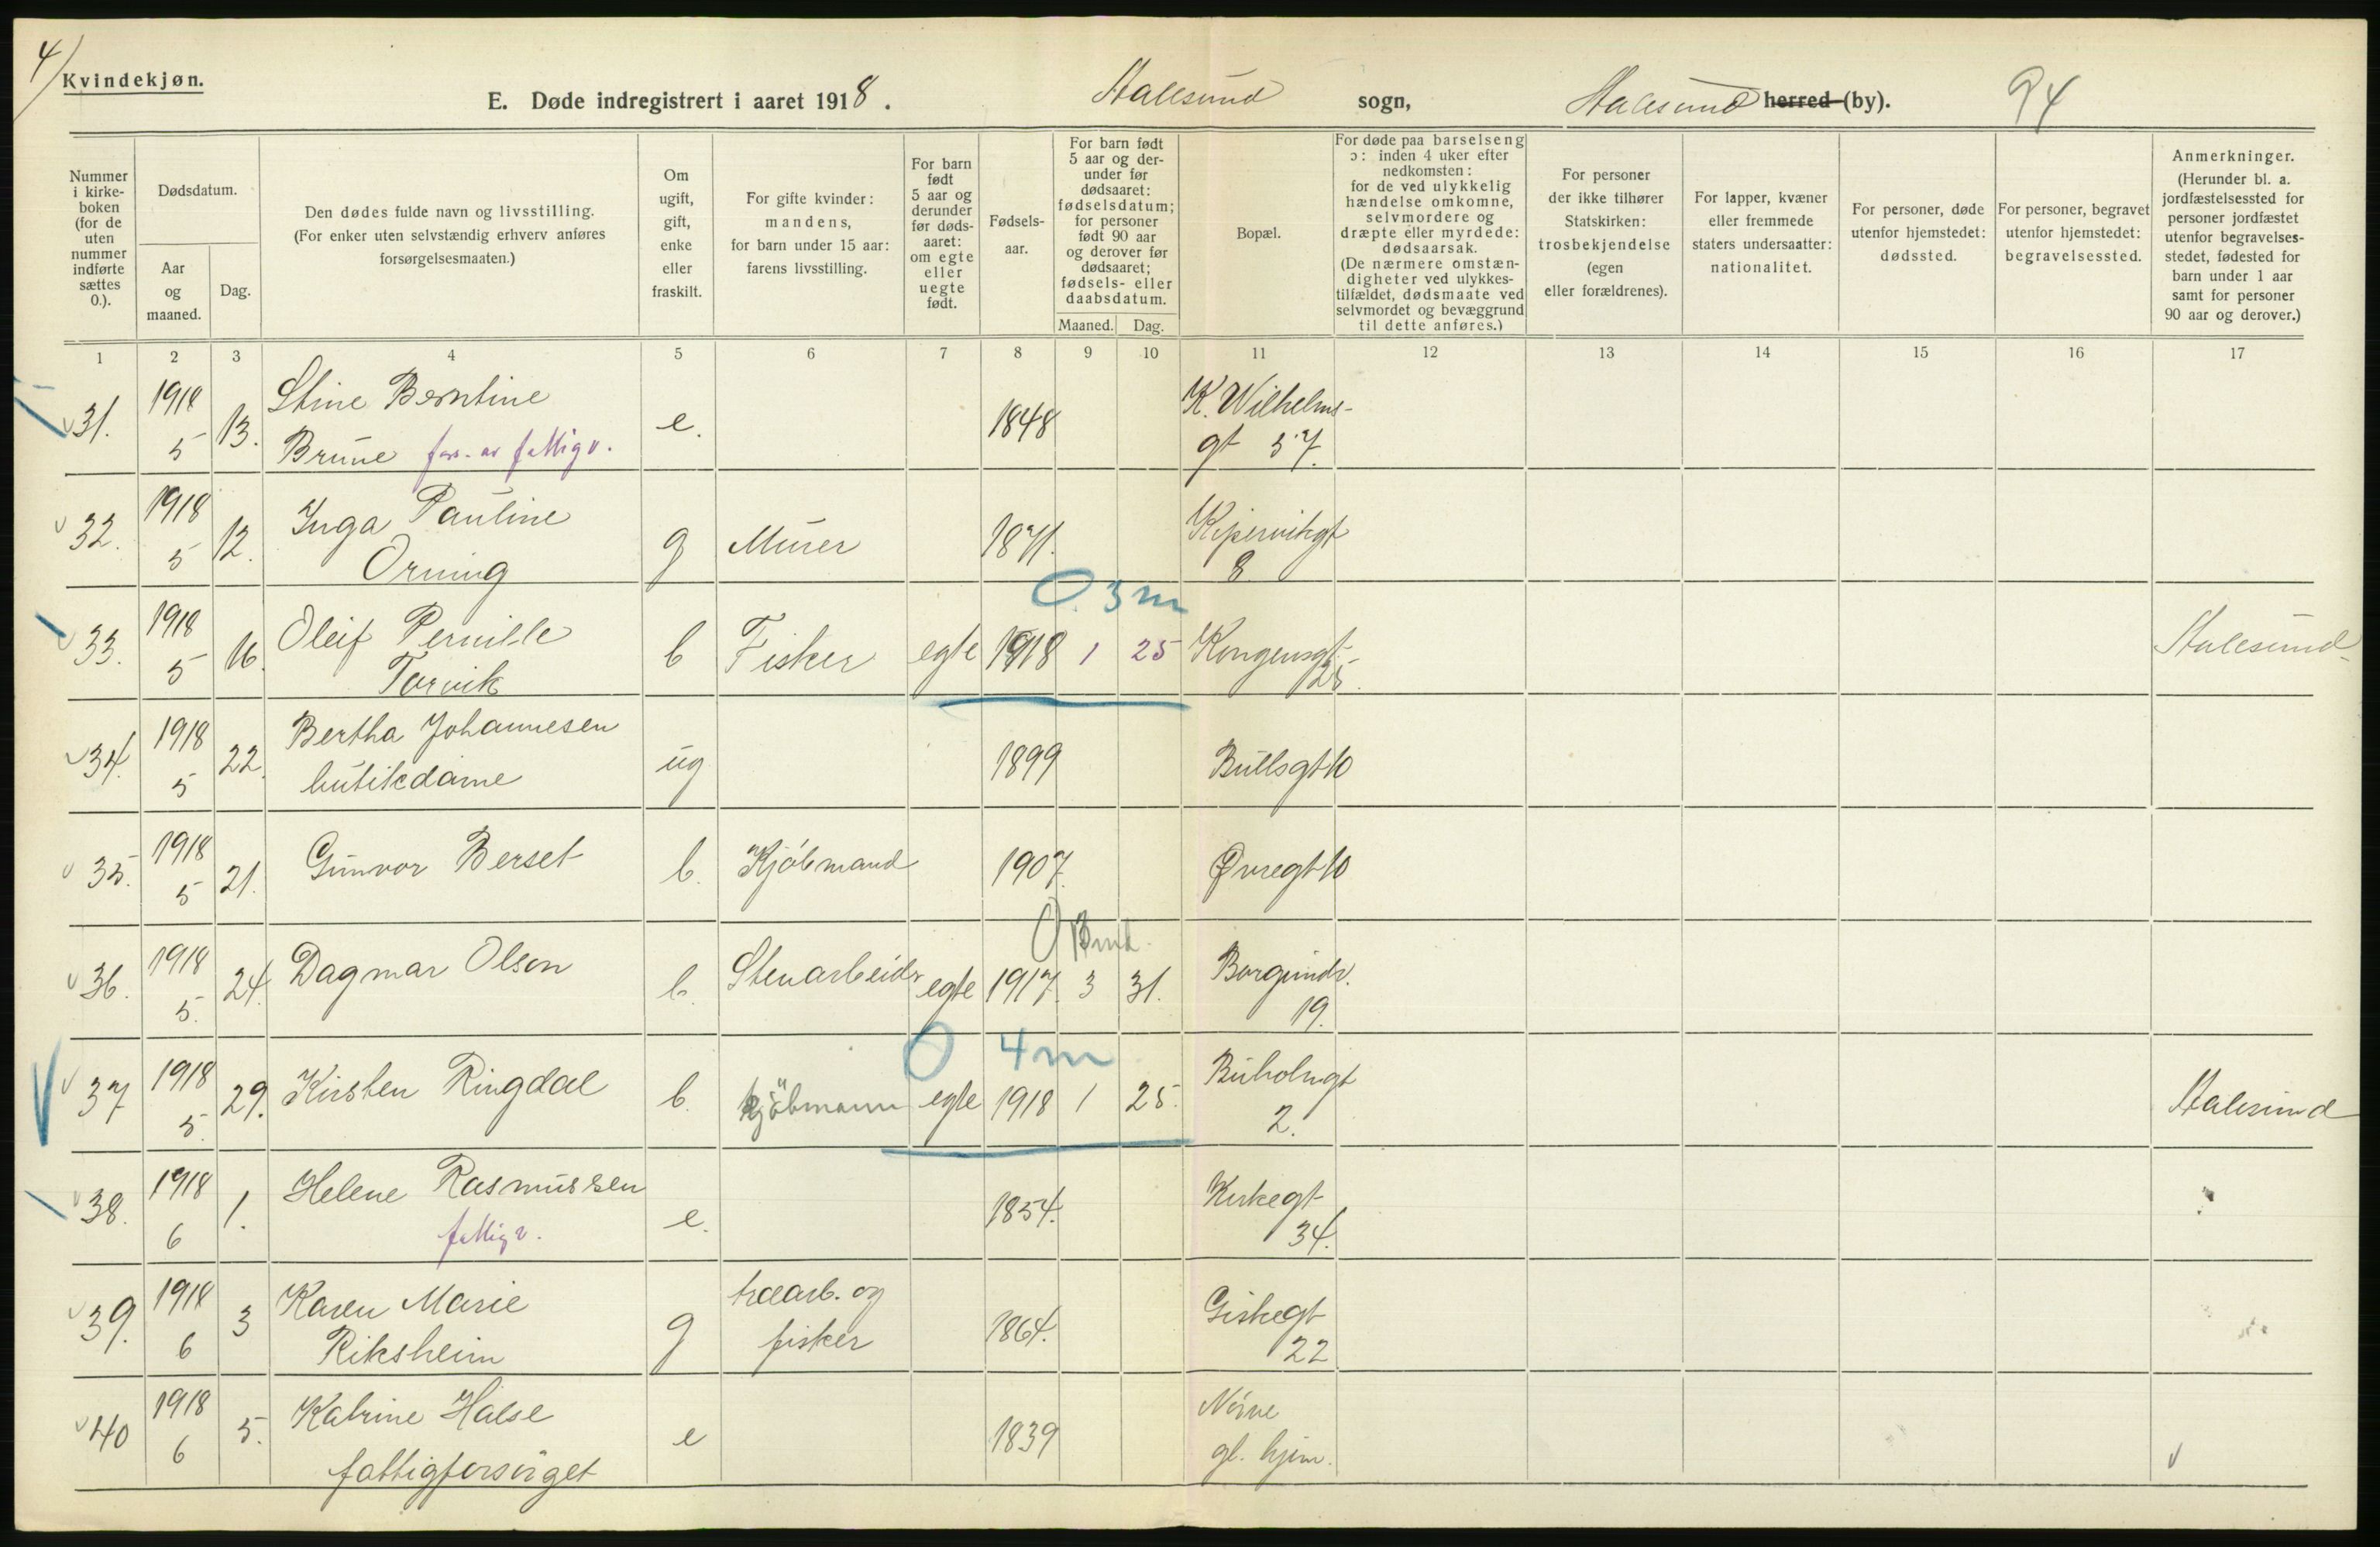 4/
Kvindekjøn.
E. Døde indregistrert i aaret 1918. Aalesund sogn, Aalesund herred (by). 94
Nummer i kirkeboken (for de uten nummer indførte sættes 0.).
Dødsdatum.
Aar og maaned.
Dag.
Den dødes fulde navn og livsstilling.
(For enker uten selvstændig erhverv anføres
forsørgelsesmaaten.)
Om ugift, gift, enke eller fraskilt.
For gifte kvinder:
mandens,
for barn under 15 aar:
farens livsstilling.
For barn født 5 aar og derunder før dødsaaret: om egte eller uegte født.
Fødselsaar.
For barn født 5 aar og derunder før dødsaaret: fødselsdatum; for personer født 90 aar og derover før dødsaaret; fødsels- eller daabsdatum.
Maaned. Dag.
Bopæl.
For døde paa barselseng
ɔ: inden 4 uker efter
nedkomsten:
for de ved ulykkelig
hændelse omkomne,
selvmordere og
dræpte eller myrdede:
dødsaarsak.
(De nærmere omstæn-
digheter ved ulykkes-
tilfældet, dødsmaate ved
selvmordet og bevæggrund
til dette anføres.)
For personer
der ikke tilhører
Statskirken:
trosbekjendelse
(egen
eller forældrenes).
For lapper, kvæner
eller fremmede
staters undersaatter:
nationalitet.
For personer, døde
utenfor hjemstedet:
dødssted.
For personer, begravet
utenfor hjemstedet:
begravelsessted.
Anmerkninger.
(Herunder bl. a.
jordfæstelsessted for
personer jordfæstet
utenfor begravelses-
stedet, fødested for
barn under 1 aar
samt for personer
90 aar og derover.)
1 2 3 4 5 6 7 8 9 10 11 12 13 14 15 16 17
31. 1918 5 13. Stine Berntine e. 1848 K. Wilhelms-
Brune fors. av fattigv. gt 37.
32. 1918 5 12. Inga Pauline g Murer 1871. Kipervikgt
Orning 8
0. 3 m
33. 1918 5 16. Oleif Pernille b Fisker egte 1918 1 25 Kongensgt. Aalesund
Torvik 25.
34. 1918 5 22. Bertha Johannesen ug 1899 Bullsgt 10
butikdame
35. 1918 5 21. Gunvor Berset b. Kjöbmand 1907. Øvregt 10
36. 1918 5. 24. Dagmar Olsen b. Stenarbeider egte 1917. 3 31. Borgundv.
19.
0 4 m
37 1918 5. 29. Kirsten Ringdal b. kjöbmann egte 1918 1 25. Buholmgt Aalesund
2.
38. 1918 6 1. Helene Rasmussen e. 1854. Kirkegt
fattigv. 34.
39. 1918 6 3 Karen Marie g træarb. og 1864. Giskegt
Riksheim fisker 22
40 1918 6 5. Katrine Halse e 1839 Nörve
fattigforsörget gl. hjem.